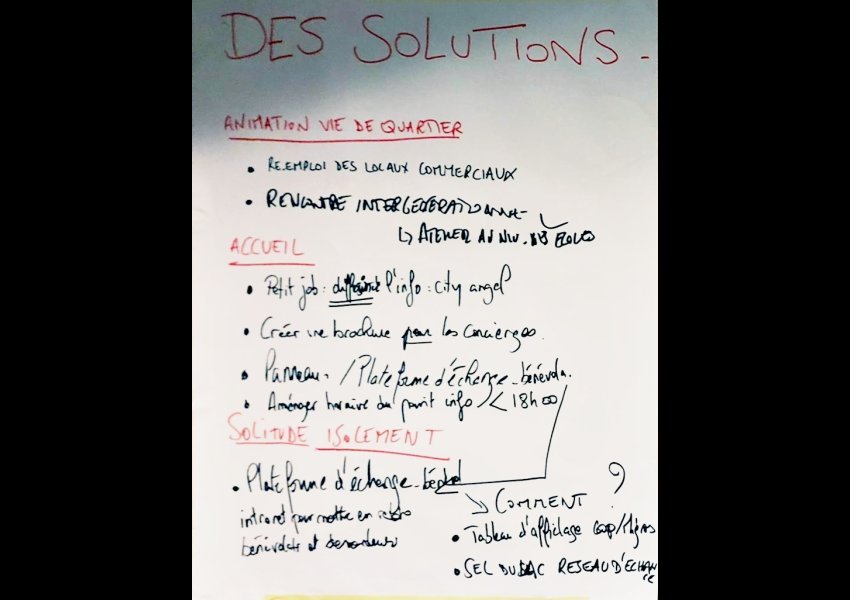 DES SOLUTIONS -
ANIMATION VIE DE QUARTIER
• RE.EMPLOI DES LOCAUX COMMERCIAUX
• RENCONTRE INTERGENERATIONNELLE
↳ ATELIER AU NIV. DES ECOLES
ACCUEIL
• Petit job : l'info : city angel
• Créer une brochure pour les concierges.
• Panneau. / Plateforme d'échange - bénévole.
• Aménager horaire du point info / < 18h00
SOLITUDE ISOLEMENT
• Plateforme d'échange -
intranet pour mettre en
bénévolats et demandeurs
COMMENT ?
• Tableau d'affichage coop/Migros
• SEL DU LAC RESEAU D'ECHANGE